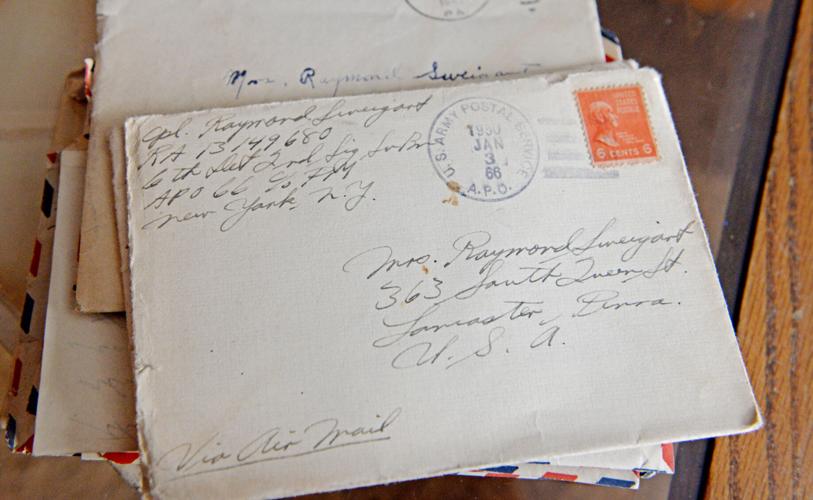 PA.
Mrs. Raymond Sweigart
Cpl. Raymond Sweigart
RA 13149680
6th Det 2nd Sig Sv Bn
APO 66 c/o P.M.
New York, N.Y.
U.S. ARMY POSTAL SERVICE
1950
JAN
3
66
A.P.O.
UNITED STATES
POSTAGE
6 CENTS 6
Mrs. Raymond Sweigart
363 South Queen St.
Lancaster, Penna.
U. S. A.
Via Air Mail